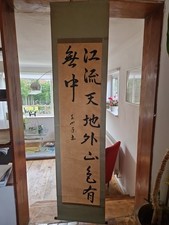 江流天地外山色有
無中